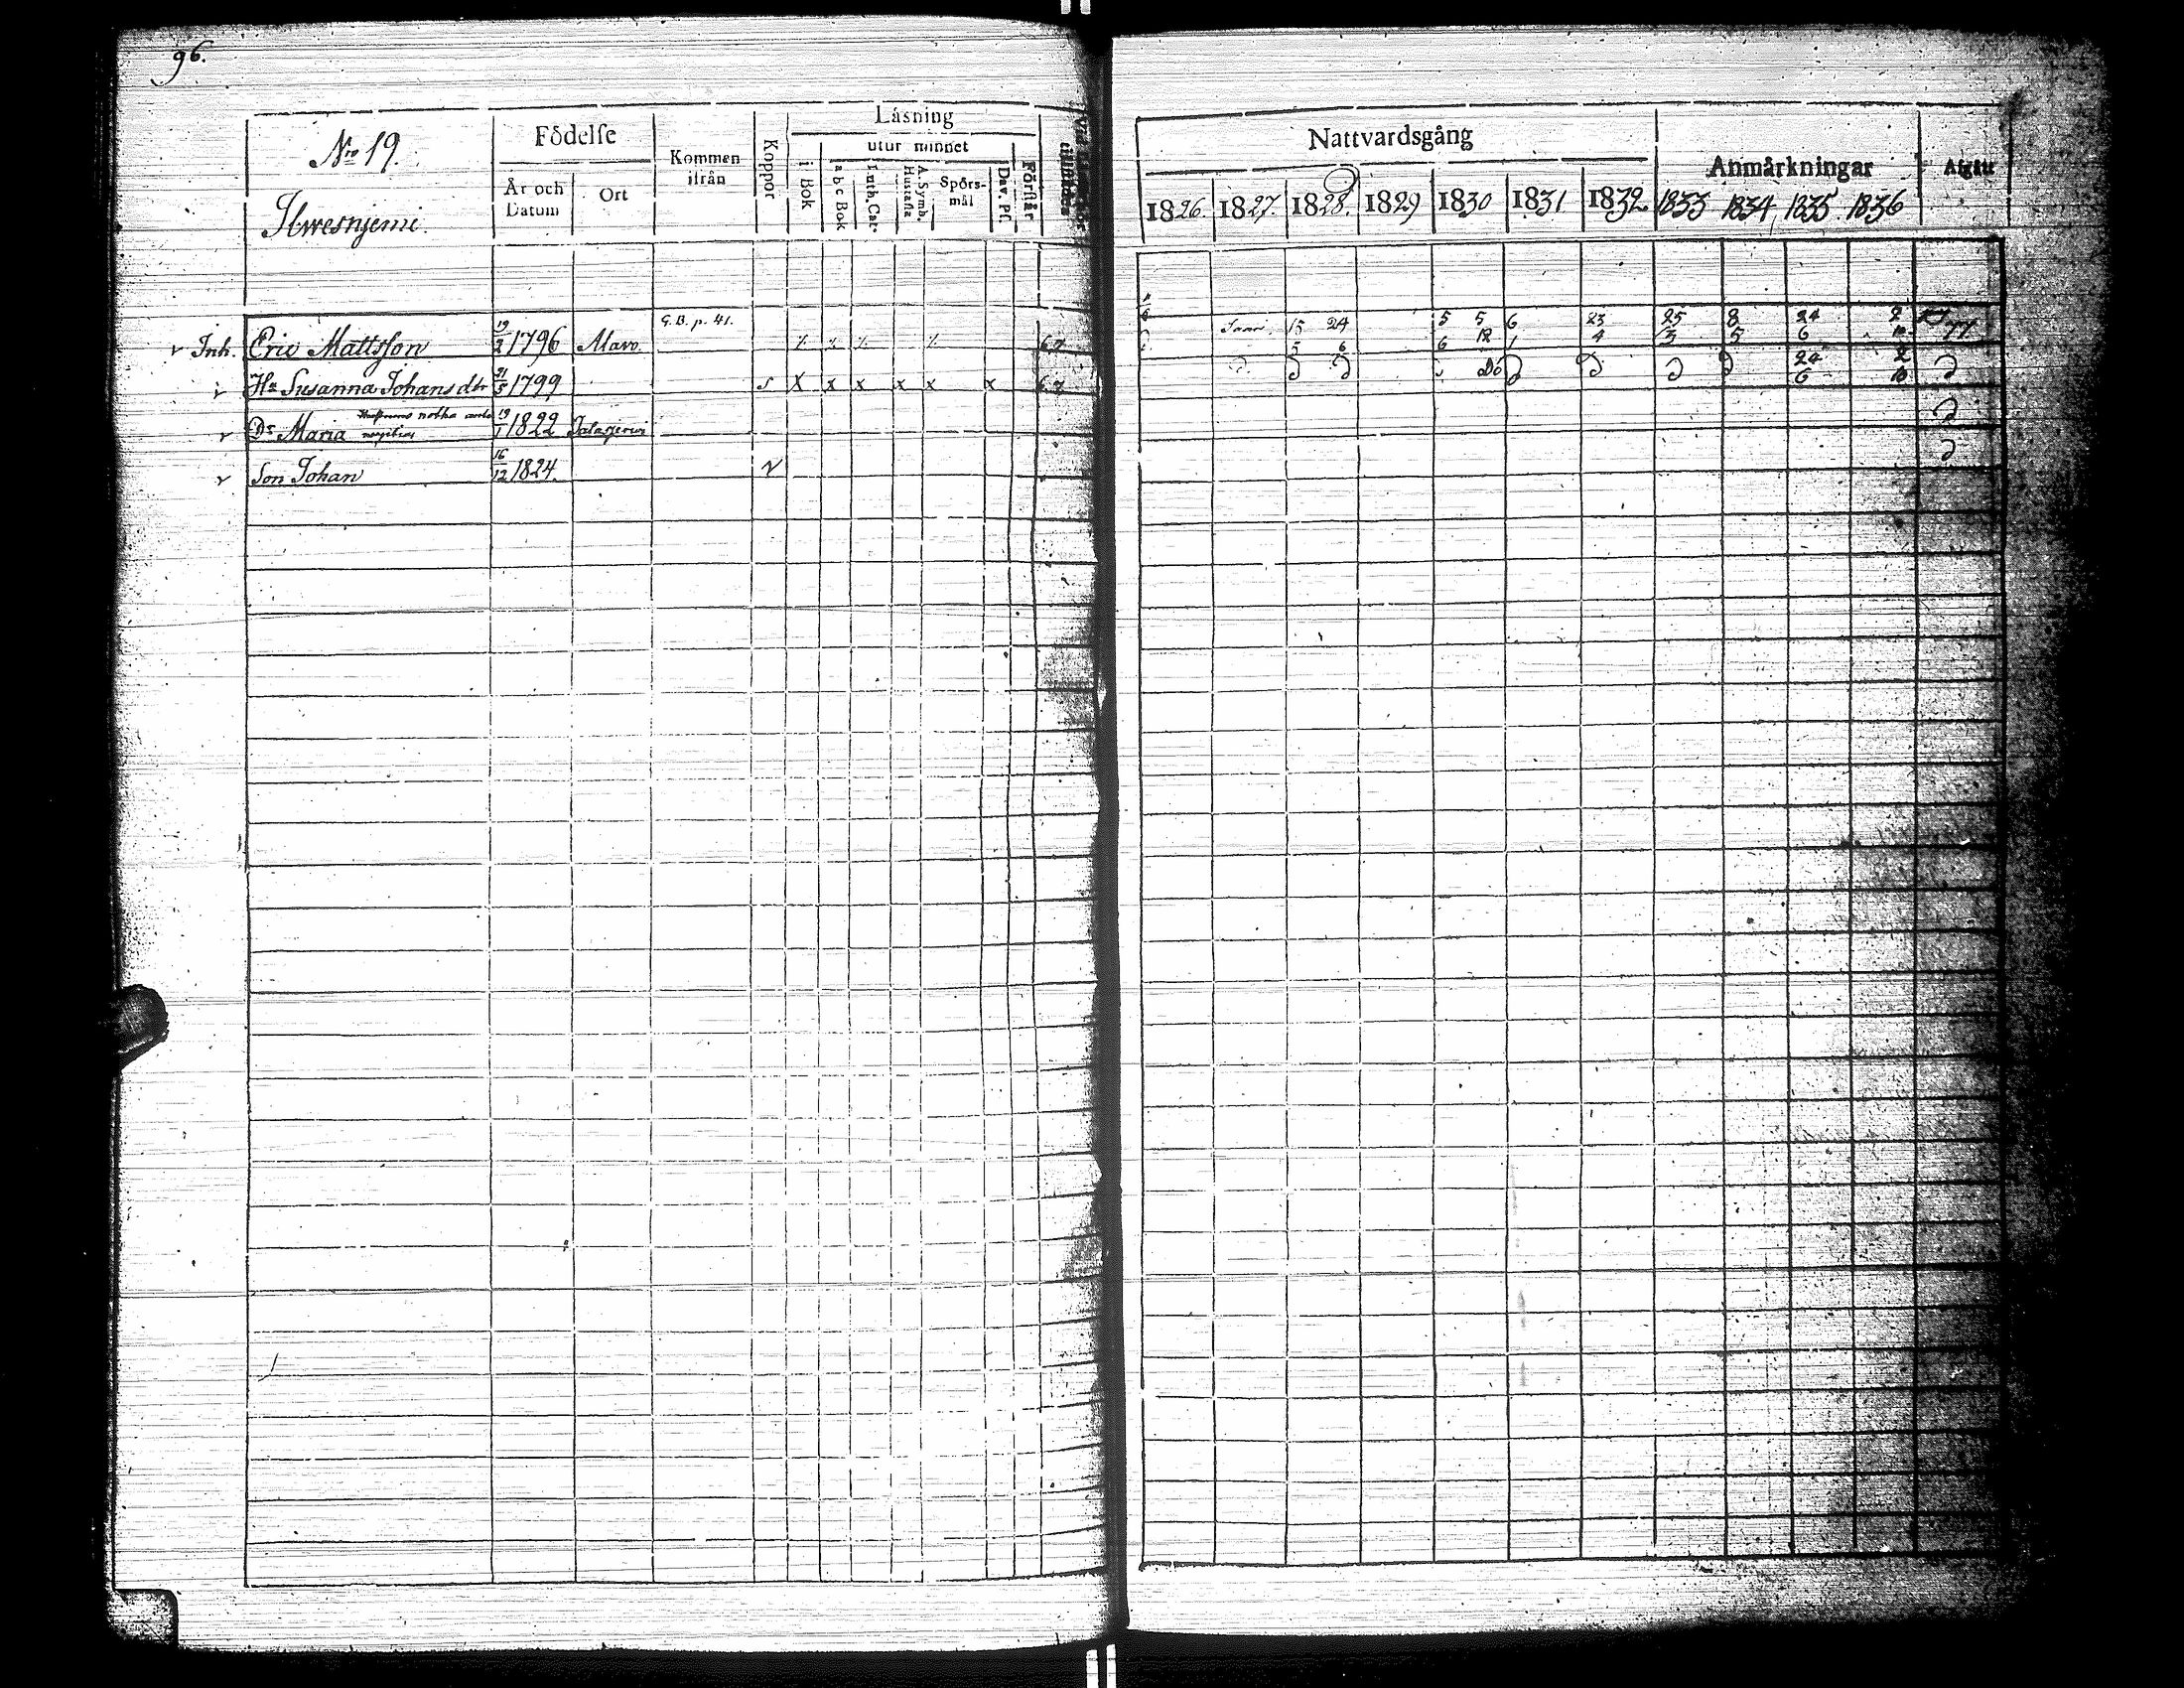 96.
Nro 19.
Ilwesnjemi.
Födelse
År och Datum
Ort
Kommen ifrån
Koppor
Läsning
utur minnet
i Bok
a b c Bok
Luth. Cat.
A. Symb. Hustafla
Spörsmål
Dav. Ps.
Förstår
Nattvardsgång
1826. 1827. 1828. 1829 1830 1831 1832
Anmärkningar
1833 1834, 1835 1836
Afgått
G. B. p. 41.
v Inh. Eric Mattsson 19/2 1796 Alavo 67
Hu Susanna Johansdtr 21/5 1799 x x x x x x 67
v Dr Maria 19/1 1822
v Son Johan 16/12 1824. v
15/5 24/6 5/6 5/12 6/1 23/4 25/3 8/5 24/6 2/10 77
Do 24/6 2/10